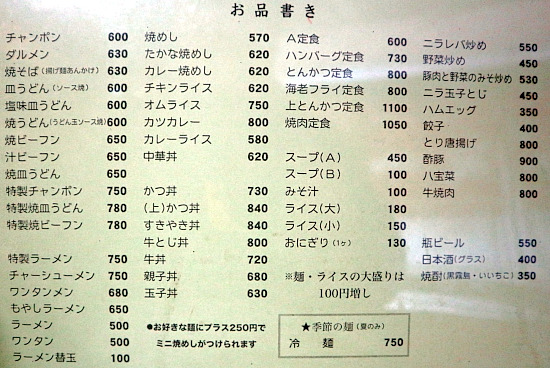 お品書き
チャンポン 600
ダルメン 630
焼そば(揚げ麺あんかけ) 630
皿うどん(ソース焼) 600
塩味皿うどん 600
焼うどん(うどん玉ソース焼) 600
焼ビーフン 650
汁ビーフン 650
焼皿うどん 650
特製チャンポン 750
特製焼皿うどん 780
特製焼ビーフン 780
特製ラーメン 750
チャーシューメン 750
ワンタンメン 680
もやしラーメン 650
ラーメン 500
ワンタン 500
ラーメン替玉 100
焼めし 570
たかな焼めし 620
カレー焼めし 620
チキンライス 620
オムライス 750
カツカレー 800
カレーライス 580
中華丼 620
かつ丼 730
(上)かつ丼 840
すきやき丼 840
牛とじ丼 800
牛丼 720
親子丼 680
玉子丼 630
●お好きな麺にプラス250円で
ミニ焼めしがつけられます
A定食 600
ハンバーグ定食 730
とんかつ定食 800
海老フライ定食 800
上とんかつ定食 1100
焼肉定食 1050
スープ(A) 450
スープ(B) 100
みそ汁 100
ライス(大) 180
ライス(小) 150
おにぎり(1ヶ) 130
※麺・ライスの大盛りは
100円増し
★季節の麺(夏のみ)
冷麺 750
ニラレバ炒め 550
野菜炒め 450
豚肉と野菜のみそ炒め 530
ニラ玉子とじ 450
ハムエッグ 350
餃子 400
とり唐揚げ 800
酢豚 900
八宝菜 800
牛焼肉 800
瓶ビール 550
日本酒(グラス) 400
焼酎(黒霧島・いいちこ) 350